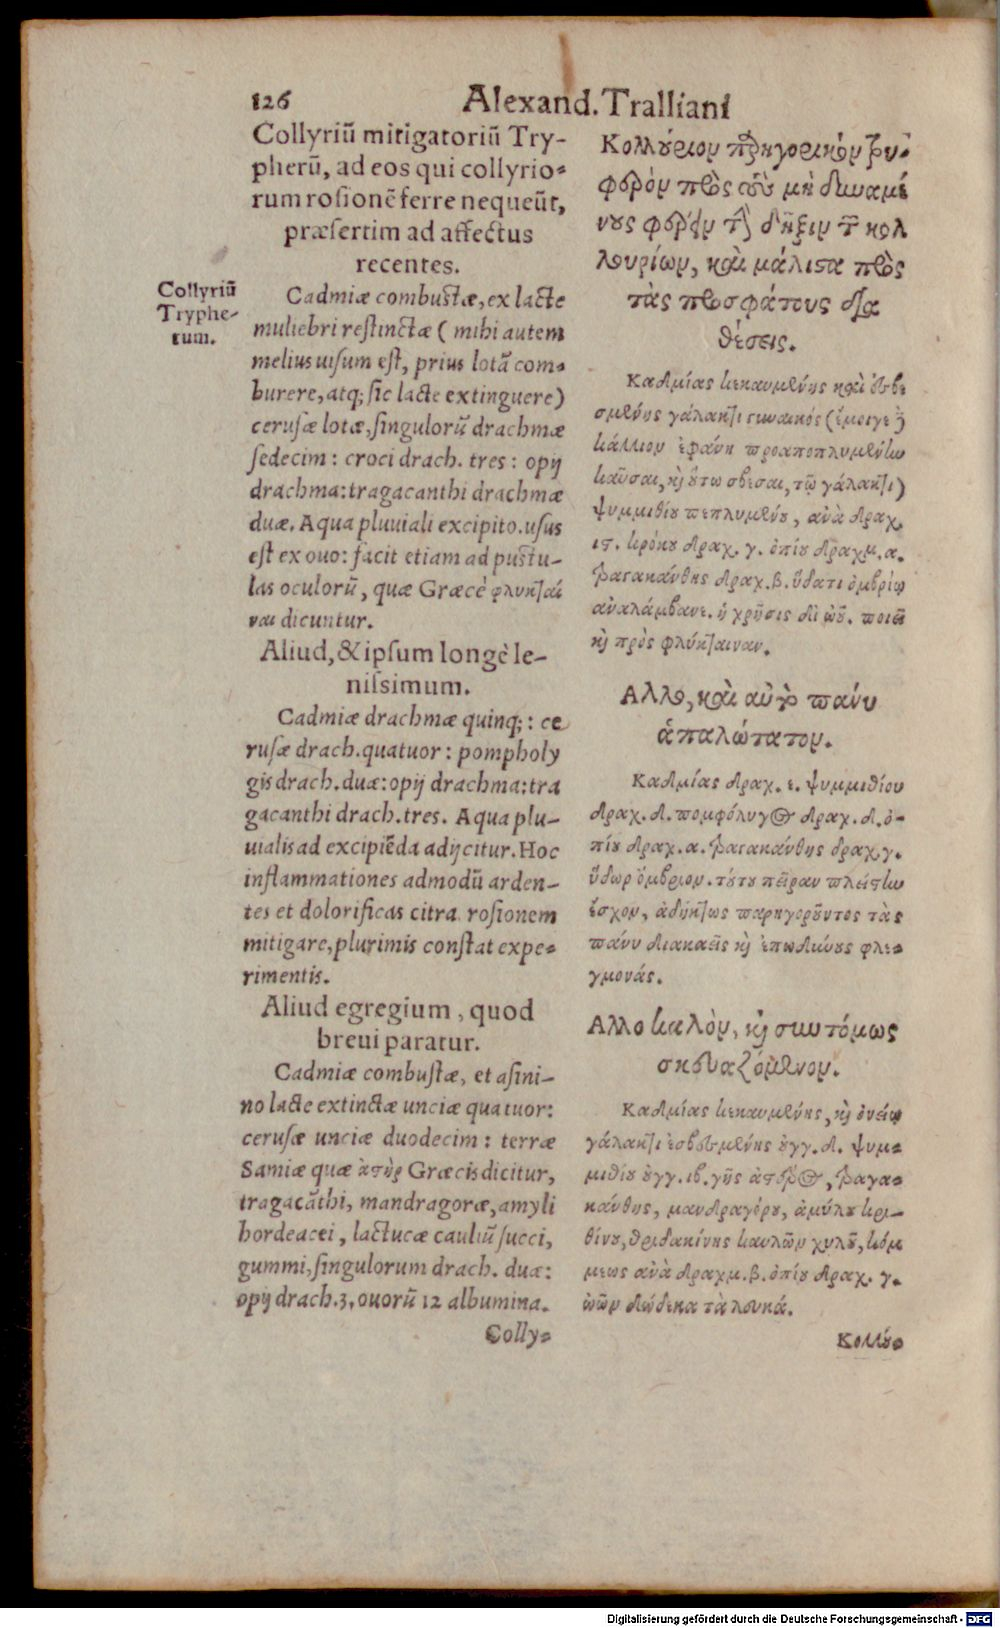 126
Alexand. Tralliani
Collyriū mitigatoriū Try-
pherū, ad eos qui collyrio-
rum rosionē ferre nequeūt,
præsertim ad affectus
recentes.
Collyriū
Tryphe-
rum.
Cadmiæ combustæ, ex lacte
muliebri restinctæ ( mihi autem
melius uisum est, prius lotā com-
burere, atq; sic lacte extinguere)
cerusæ lotæ, singulorū drachmæ
sedecim : croci drach. tres : opij
drachma: tragacanthi drachmæ
duæ. Aqua pluuiali excipito. usus
est ex ouo: facit etiam ad pustu-
las oculorū, quæ Græcè φλυκταί
ναι dicuntur.
Aliud, & ipsum longè le-
nissimum.
Cadmiæ drachmæ quinq; : ce
rusæ drach. quatuor : pompholy
gis drach. duæ: opij drachma: tra
gacanthi drach. tres. Aqua plu-
uialis ad excipiēda adijcitur. Hoc
inflammationes admodū arden-
tes et dolorificas citra rosionem
mitigare, plurimis constat expe-
rimentis.
Aliud egregium, quod
breui paratur.
Cadmiæ combustæ, et asini-
no lacte extinctæ unciæ quatuor:
cerusæ unciæ duodecim : terræ
Samiæ quæ ἀστὴρ Græcis dicitur,
tragacāthi, mandragoræ, amyli
hordeacei, lactucæ cauliū succi,
gummi, singulorum drach. duæ:
opij drach. 3, ouorū 12 albumina.
Colly-
Κολλύριον παρηγορικὸν τρυ-
φερὸν πρὸς τοὺς μὴ δυναμέ
νους φέρειν τὴν δῆξιν τῶν κολ
λουρίων, καὶ μάλιστα πρὸς
τὰς προσφάτους δια
θέσεις.
Καδμίας κεκαυμένης καὶ ἐσβε
σμένης γάλακτι γυναικός (ἔμοιγε δὲ
κάλλιον ἐφάνη προαποπλυμένην
καῦσαι, καὶ οὕτω σβεσαι, τῷ γάλακτι)
ψυμμιθίου πεπλυμένου, ἀνὰ δραχ.
ις. κρόκου δραχ. γ. ὀπίου δραχμ. α.
τραγακάνθης δραχ. β. ὕδατι ὀμβρίῳ
ἀναλάμβανε. ἡ χρῆσις δι' ὠοῦ. ποιεῖ
καὶ πρὸς φλύκταιναν.
Αλλο, καὶ αὐτὸ πάνυ
ἁπαλώτατον.
Καδμίας δραχ. ε. ψυμμιθίου
δραχ. δ. πομφόλυγος δραχ. δ. ὀ-
πίου δραχ. α. τραγακάνθης δραχ. γ.
ὕδωρ ὄμβριον. τούτου πεῖραν πλείστην
ἔσχον, ἀδήκτως παρηγοροῦντος τὰς
πάνυ διακαεῖς καὶ ἐπωδύνους φλε-
γμονάς.
Αλλο καλὸν, καὶ συντόμως
σκευαζόμενον.
Καδμίας κεκαυμένης, καὶ ὀνείῳ
γάλακτι ἐσβεσμένης οὐγγ. δ. ψυμ-
μιθίου οὐγγ. ιβ. γῆς ἀστέρος, τραγα-
κάνθης, μανδραγόρου, ἀμύλου κρι-
θίνου, θριδακίνης καυλῶν χυλοῦ, κόμ
μεως ἀνὰ δραχμ. β. ὀπίου δραχ. γ.
ὠῶν δώδεκα τὰ λευκά.
Κολλύ-
Digitalisierung gefördert durch die Deutsche Forschungsgemeinschaft - DFG